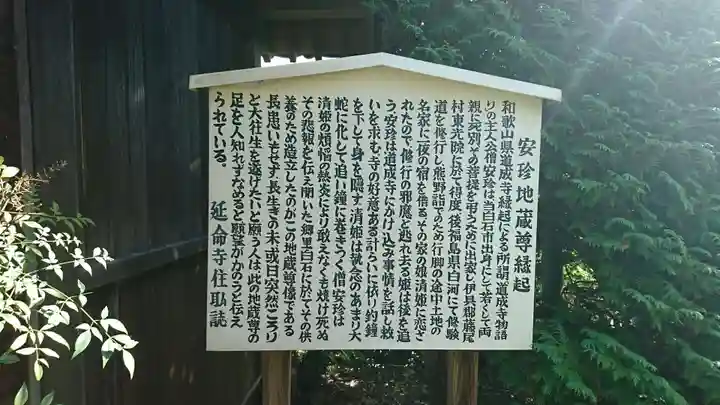 安珍地蔵尊縁起
和歌山県道成寺縁起による所謂道成寺物語
りの主人公僧安珍は当白石市出身にして若くして両
親に死別その菩提を弔うために出家し伊具郡藤尾
村東光院に於て得度 後福島県白河にて修験
道を修行し熊野詣でのため行脚の途中土地の
名家に一夜の宿を借るその家の娘清姫に恋さ
れたので修行の邪魔と逃れ去る姫は後を追
う安珍は道成寺にかけ込み事情を話し救
いを求む寺の好意ある計らいに依り釣鐘
を下して身を隠す清姫は執念のあまり大
蛇に化して追い鐘に巻きつく僧安珍は
清姫の煩悩の熱炎により敢えなくも焼け死ぬ
その悲報を伝え聞いた郷里白石に於てその供
養のため造立したのがこの地蔵尊様である
長患いもせず長生きの末に或日突然ころり
と大往生を遂げたいと願う人は此の地蔵尊の
足を人知れずなぜると願望がかのうと伝え
られている。 延命寺住職誌